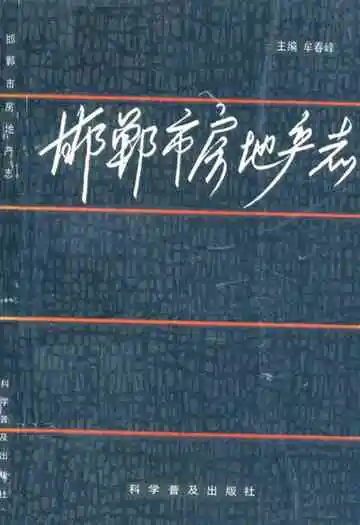 主编 牟春峰
邯郸市房地产志
科学普及出版社
邯郸市房地产志
科学普及出版社